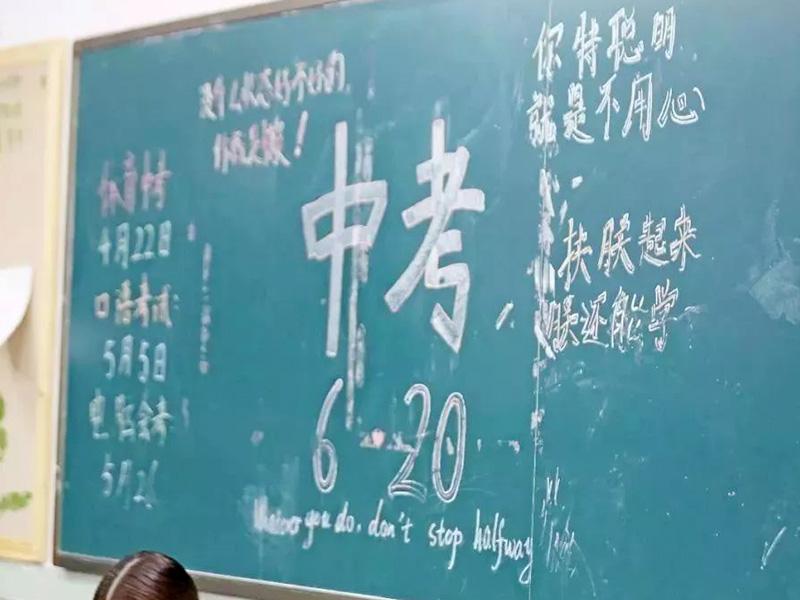 你特聪明
就是不用心
没什么状态好不好的
你而去做！
中考
6 20
体育中考
4月22日
口语考试:
5月5日
电脑会考
5月2
扶朕起来
朕还能学
you do, don't stop halfway